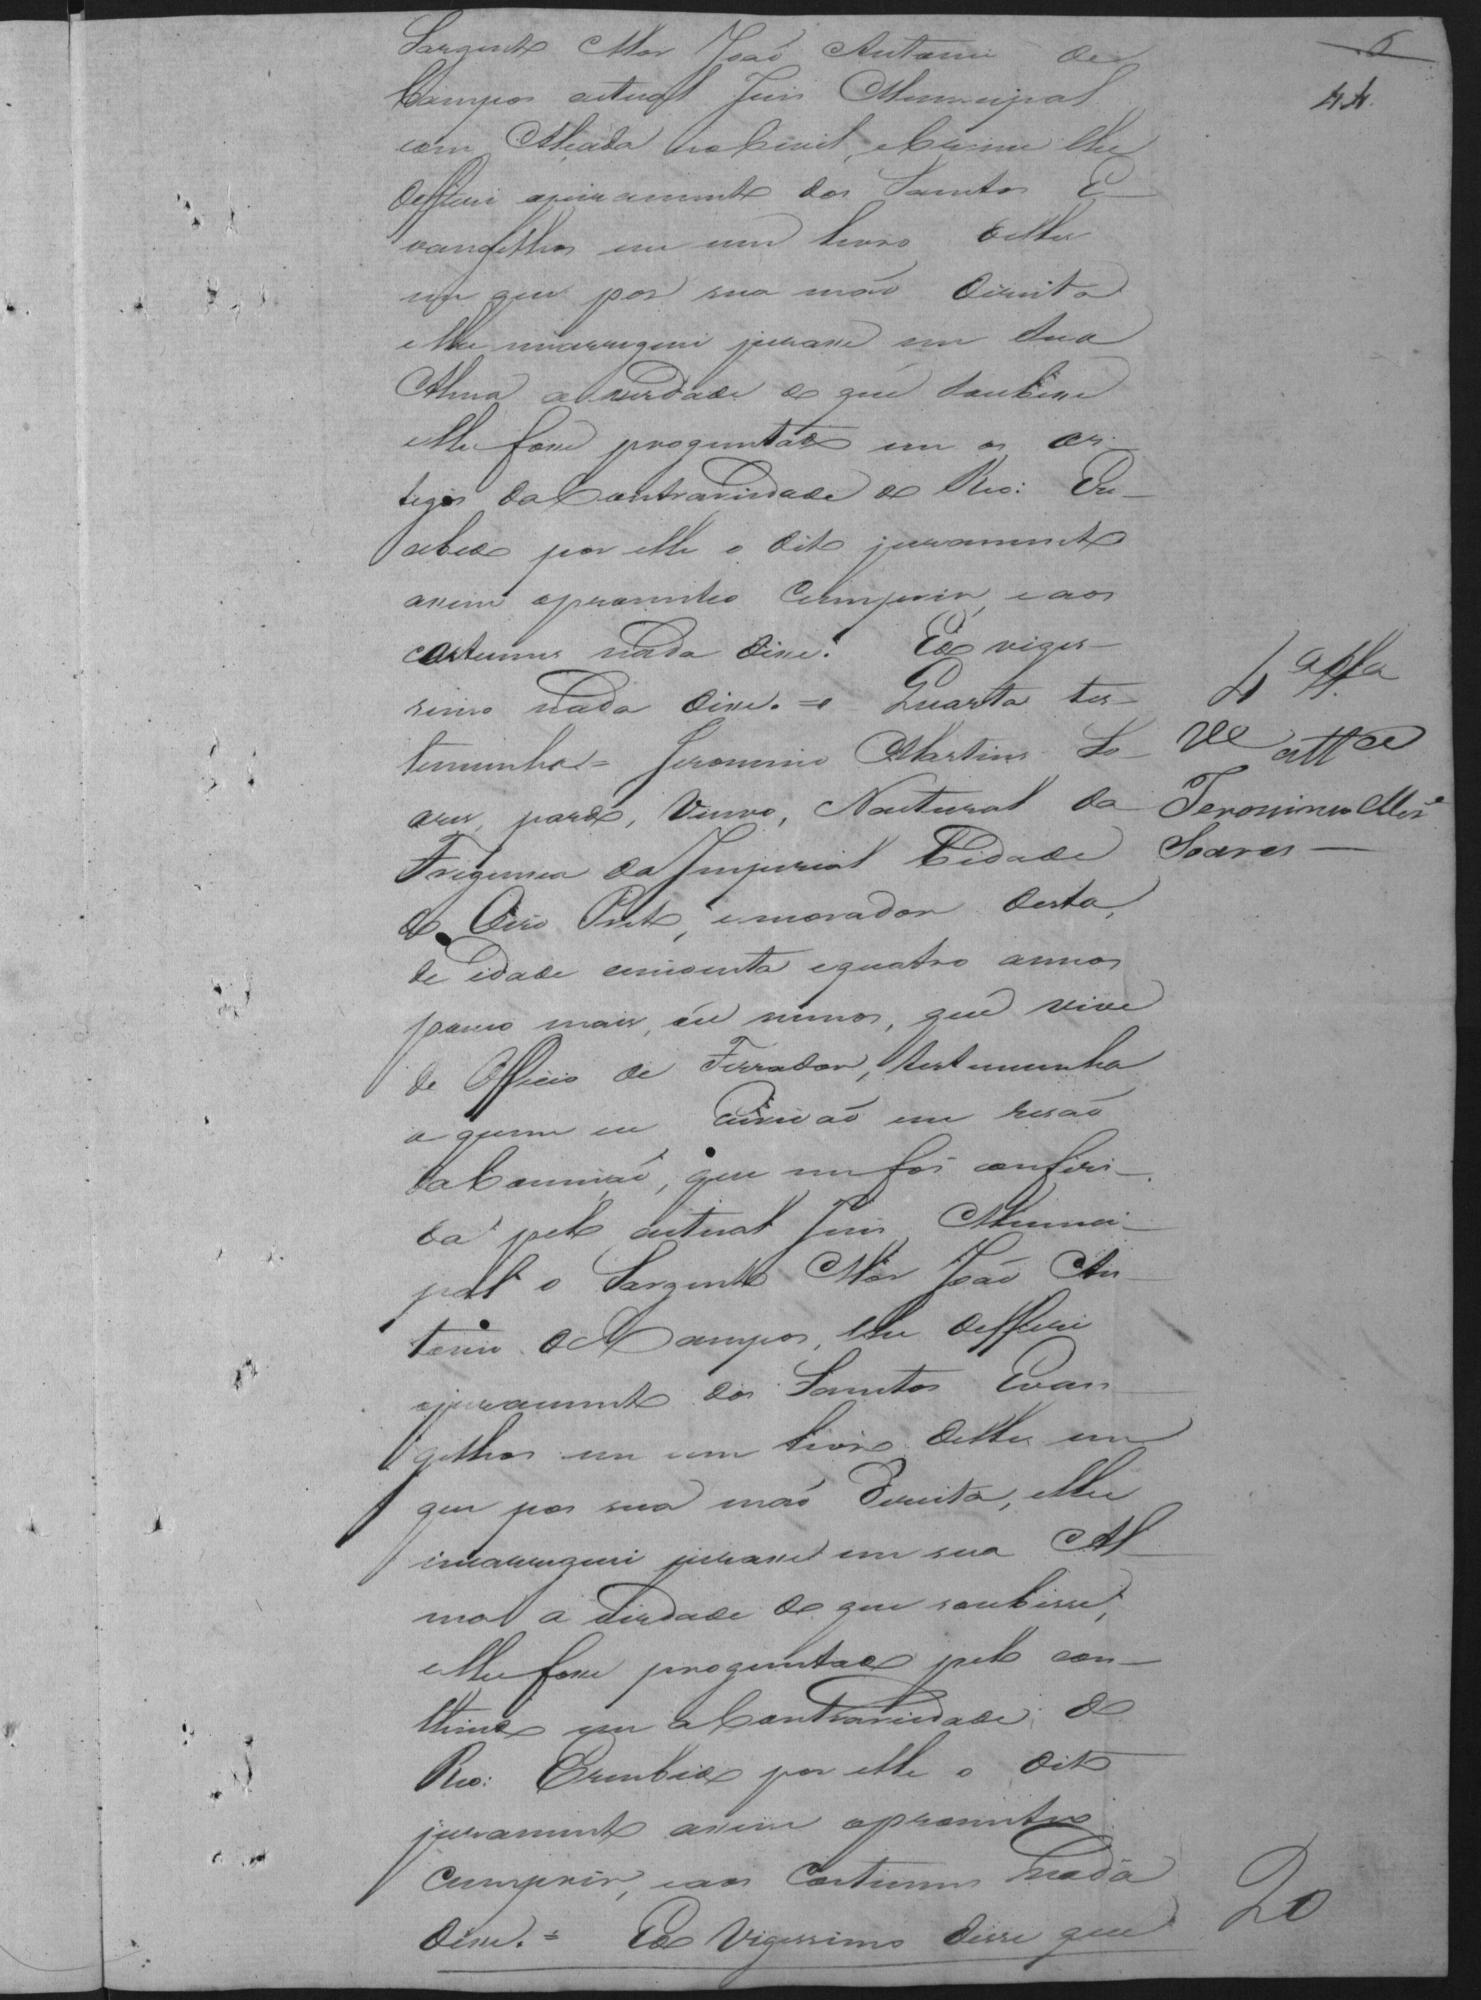 Sargento Mor João Antonio de
Campos actual Juis Municipal
com Alçada no Civel, e Crime lhe
defferi ojuramento dos Santos E
vangelhos em um livro delles
em que pos sua mão direita
elhe encarreguei jurase em sua
Alma a verdade do que soubese
elhe fose proguntado em os ar
tigos da Contrariedade do Reo: Re
cebido por elle o dito juramento
asim oprometeo cumprir, e aos
costumes nada dise. Ao viges
simo nada dise. = Quarta tes
temunha = Jeronimo Martins So
ares, pardo, Viuvo, Natural da
Freguesia da Imperial Cidade
do Oiro Preto, e morador desta,
de idade cincoenta equatro annos
pouco mais, ou menos, que vive
de Officio de Ferrador, testemunha
a quem eu Escrivão em resão
da Comição, que me foi conferi
da pelo actual Juis Munici
pal o Sargento Mor João An
tonio de Campos, lhe defferi
ojuramento dos Santos Evan
gelhos em um livro delles em
que pos sua mão Direita, elhe
encarreguei jurase em sua Al
ma a verdade do que soubesse,
elhe fose proguntado pelo con
theudo em a Contrariedade do
Reo: Erecebido por elle o dito
juramento asim oprometeo
cumprir, e aos Costumes nada
dise. = Ao Vigessimo disse que
6
44.
4ª
Jeronimo
Soares
20